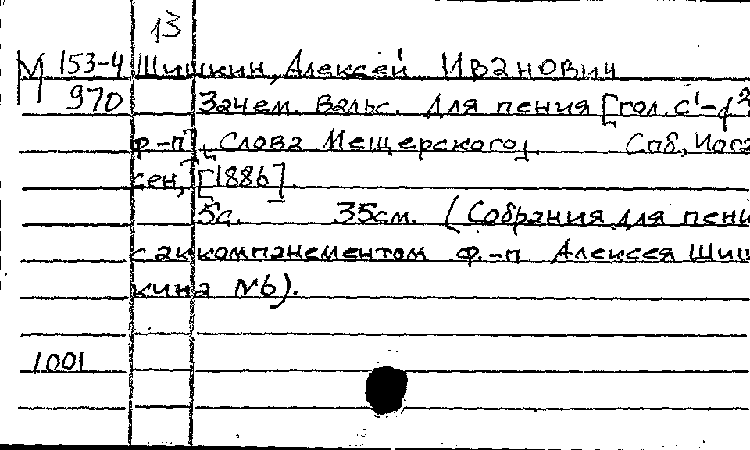 13
М 153-4 Шишкин, Алексей Иванович
970 Зачем. Вальс. Для пения [гол. c¹-f²
ф.-п], Слова Мещерского, Спб, Иоган
сен, [1886].
5с. 35см. (Собрания для пени
с аккомпанементом ф.-п Алексея Шиш
кина №6).
1001